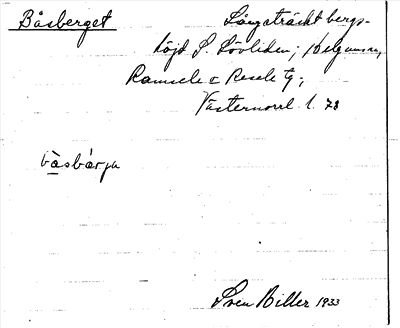 Båsberget Långsträckt bergs-
höjd S. Lövliden; helgumsm,
Ramsele o Resele tg;
Västernorrl. l. 78
bàsbárja
Sven Biller 1933